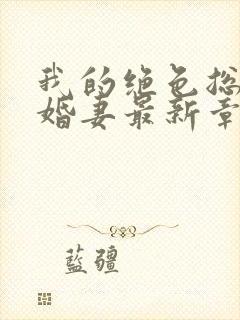 我的绝色总
婚妻最新章
藍疆